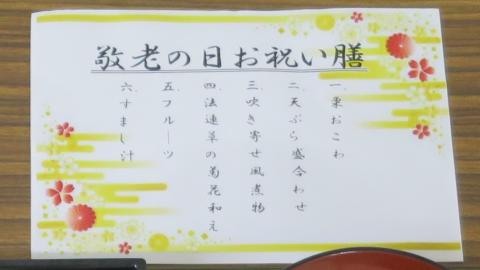 敬老の日お祝い膳
一、栗おこわ
二、天ぷら盛合わせ
三、吹き寄せ風煮物
四、法連草の菊花和え
五、フルーツ
六、すまし汁